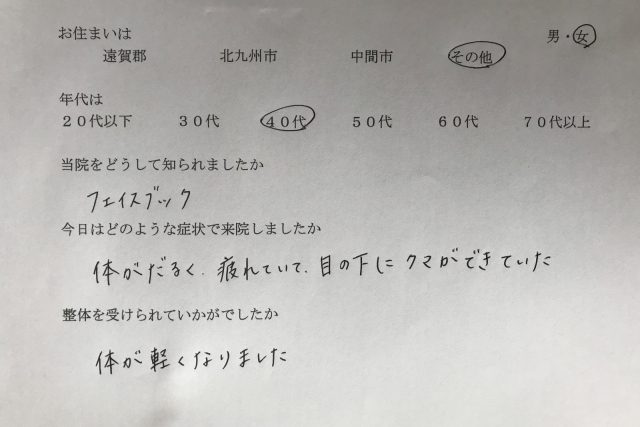 お住まいは 男・女
遠賀郡 北九州市 中間市 その他
年代は
２０代以下 ３０代 ４０代 ５０代 ６０代 ７０代以上
当院をどうして知られましたか
フェイスブック
今日はどのような症状で来院しましたか
体がだるく、疲れていて、目の下にクマができていた
整体を受けられていかがでしたか
体が軽くなりました